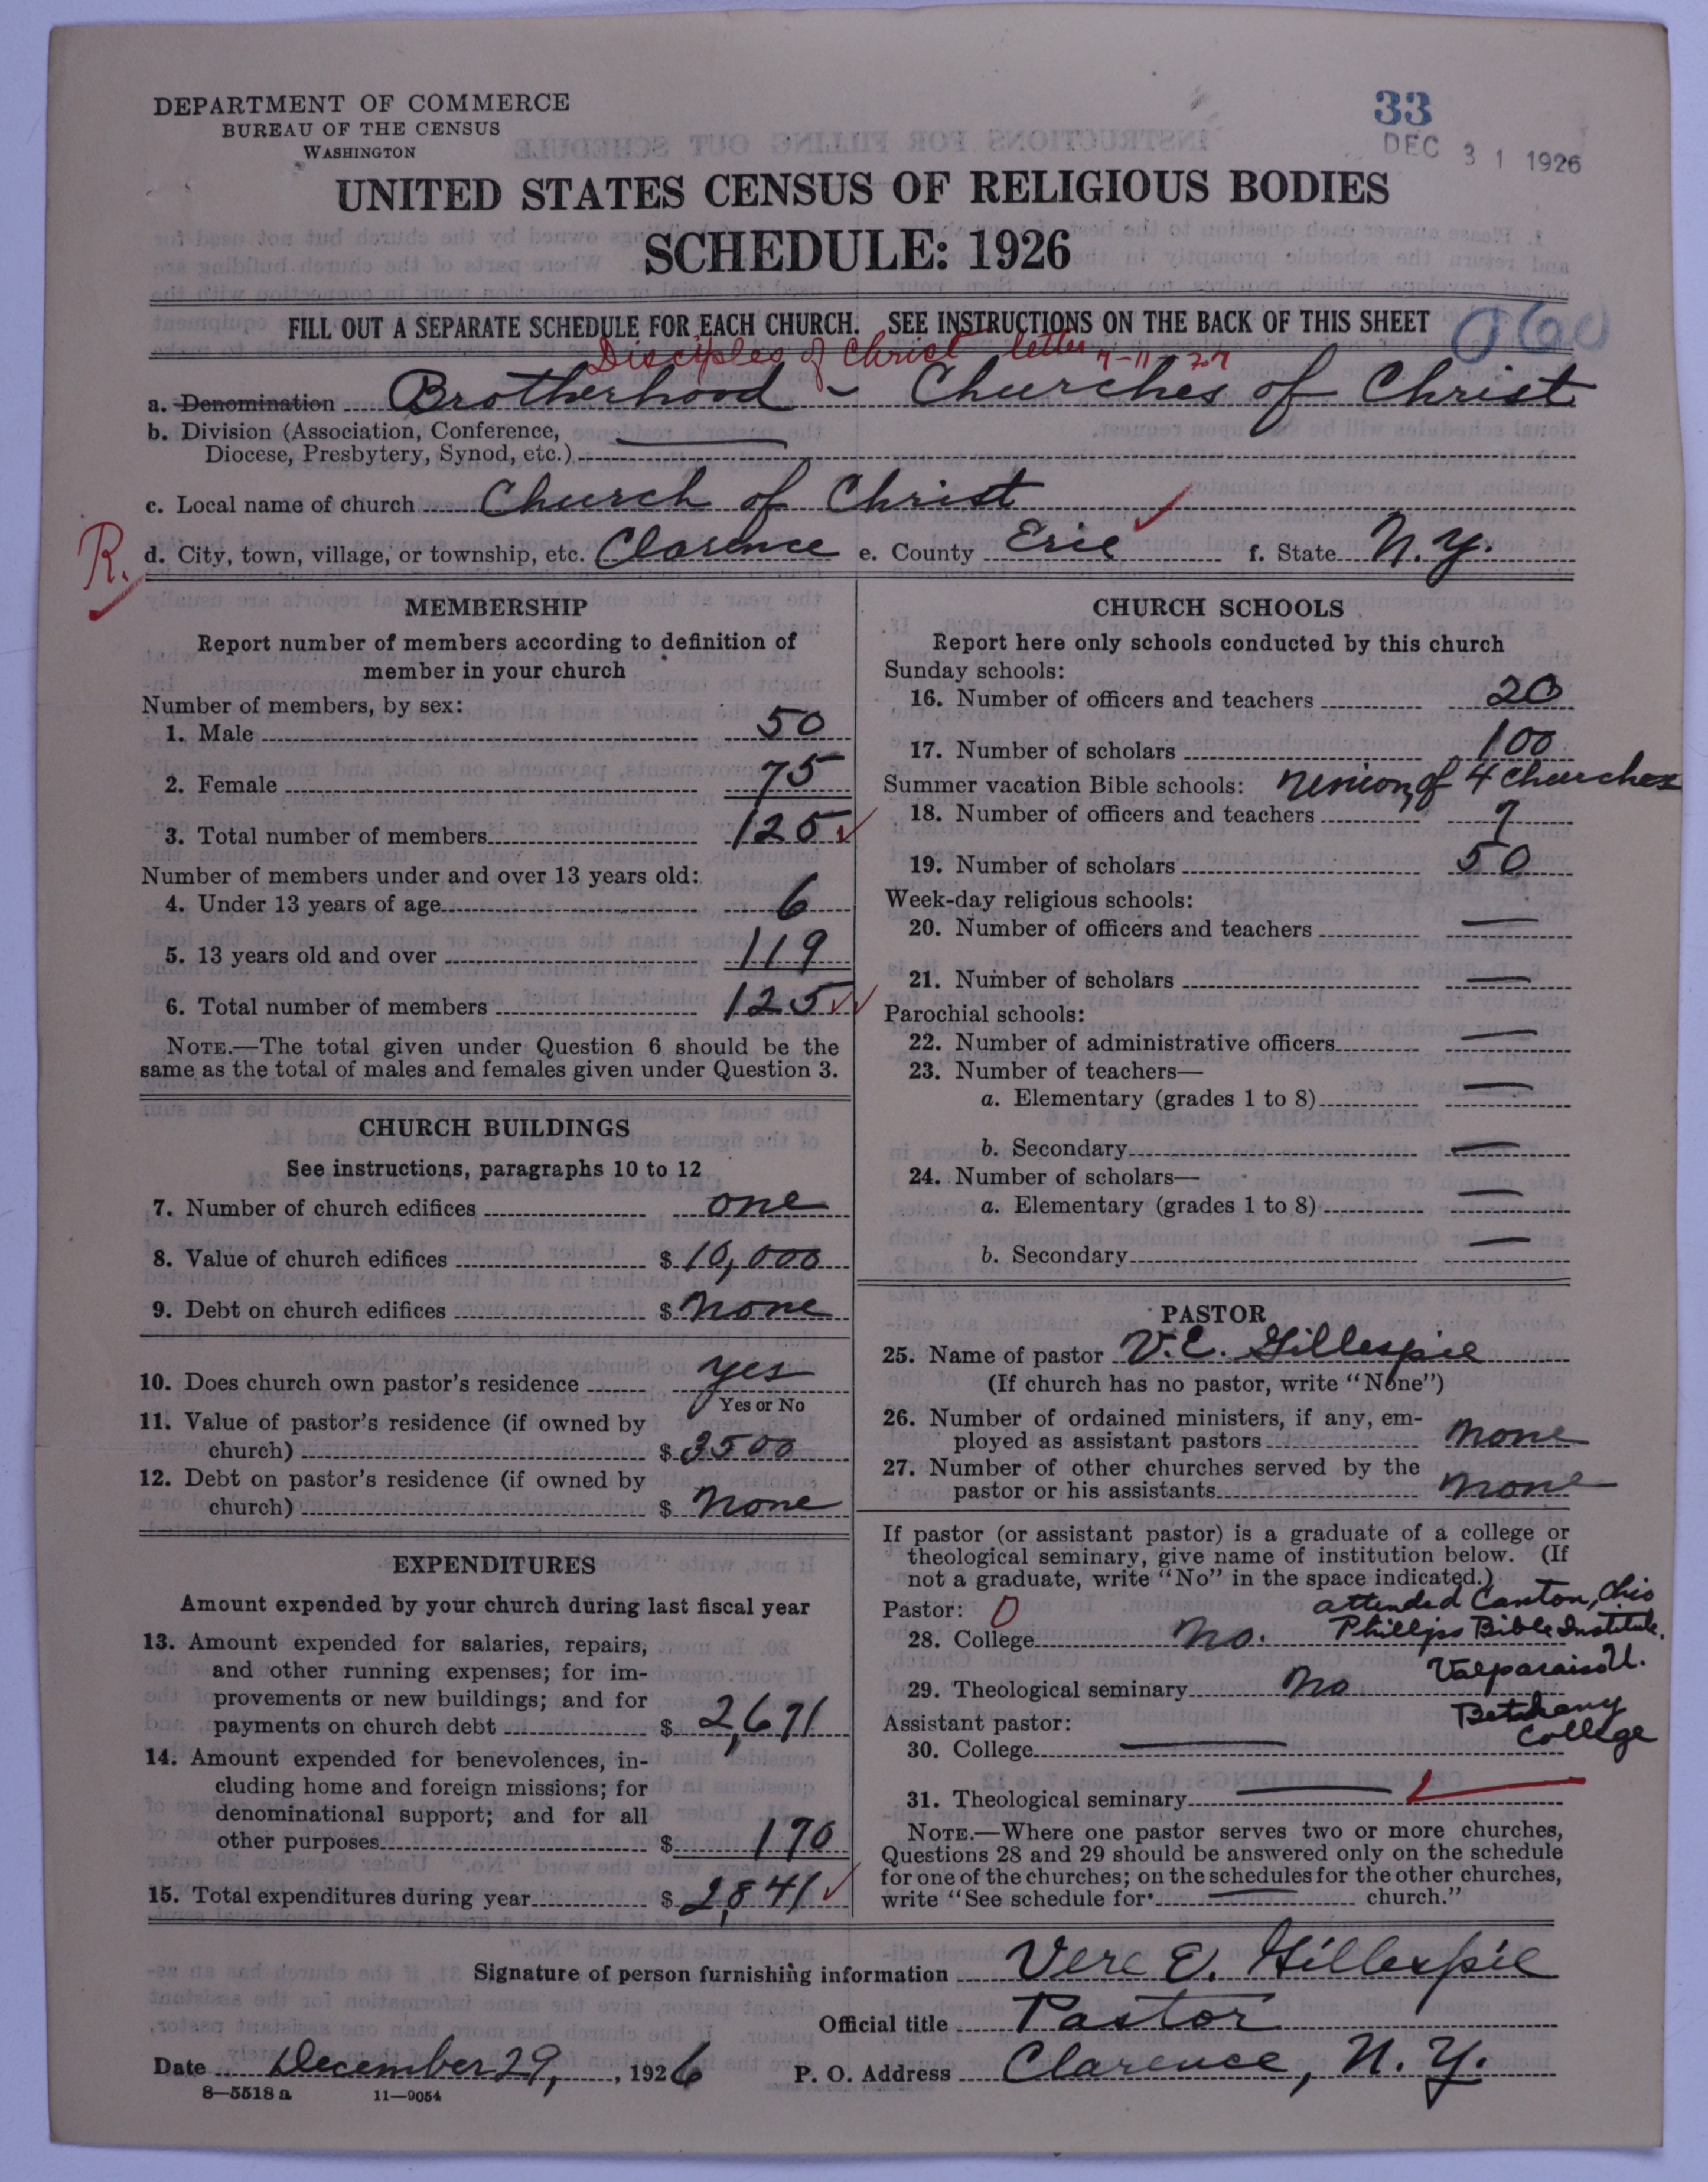 DEPARTMENT OF COMMERCE
BUREAU OF THE CENSUS
WASHINGTON
33
DEC 31 1926
UNITED STATES CENSUS OF RELIGIOUS BODIES
SCHEDULE: 1926
FILL OUT A SEPARATE SCHEDULE FOR EACH CHURCH. SEE INSTRUCTIONS ON THE BACK OF THIS SHEET
060
Disciples of Christ letter 7-11-27
a. Denomination Brotherhood - Churches of Christ
b. Division (Association, Conference,
Diocese, Presbytery, Synod, etc.) —
c. Local name of church Church of Christ
R.
d. City, town, village, or township, etc. Clarence e. County Erie f. State N.Y.
MEMBERSHIP
Report number of members according to definition of
member in your church
Number of members, by sex:
1. Male 50
2. Female 75
3. Total number of members 125
Number of members under and over 13 years old:
4. Under 13 years of age 6
5. 13 years old and over 119
6. Total number of members 125
NOTE.—The total given under Question 6 should be the
same as the total of males and females given under Question 3.
CHURCH BUILDINGS
See instructions, paragraphs 10 to 12
7. Number of church edifices one
8. Value of church edifices $ 10,000
9. Debt on church edifices $ none
10. Does church own pastor's residence yes
Yes or No
11. Value of pastor's residence (if owned by
church) $ 3500
12. Debt on pastor's residence (if owned by
church) $ none
EXPENDITURES
Amount expended by your church during last fiscal year
13. Amount expended for salaries, repairs,
and other running expenses; for im-
provements or new buildings; and for
payments on church debt $ 2,671
14. Amount expended for benevolences, in-
cluding home and foreign missions; for
denominational support; and for all
other purposes $ 170
15. Total expenditures during year $ 2,841
CHURCH SCHOOLS
Report here only schools conducted by this church
Sunday schools:
16. Number of officers and teachers 20
17. Number of scholars 100
Summer vacation Bible schools: of 4 churches
18. Number of officers and teachers 7
19. Number of scholars 50
Week-day religious schools:
20. Number of officers and teachers —
21. Number of scholars —
Parochial schools:
22. Number of administrative officers —
23. Number of teachers—
a. Elementary (grades 1 to 8) —
b. Secondary —
24. Number of scholars—
a. Elementary (grades 1 to 8) —
b. Secondary —
PASTOR
25. Name of pastor V.E. Gillespie
(If church has no pastor, write "None")
26. Number of ordained ministers, if any, em-
ployed as assistant pastors none
27. Number of other churches served by the
pastor or his assistants none
If pastor (or assistant pastor) is a graduate of a college or
theological seminary, give name of institution below. (If
not a graduate, write "No" in the space indicated.)
attended Canton, Ohio
Pastor: 0
28. College no. Phillips Bible Institute.
Valparaiso U.
29. Theological seminary no
Bethany
College
Assistant pastor:
30. College —
31. Theological seminary —
NOTE.—Where one pastor serves two or more churches,
Questions 28 and 29 should be answered only on the schedule
for one of the churches; on the schedules for the other churches,
write "See schedule for — church."
Signature of person furnishing information Vere E. Gillespie
Official title Pastor
Date December 29, 1926 P. O. Address Clarence, N.Y.
8—5518 a 11—9054